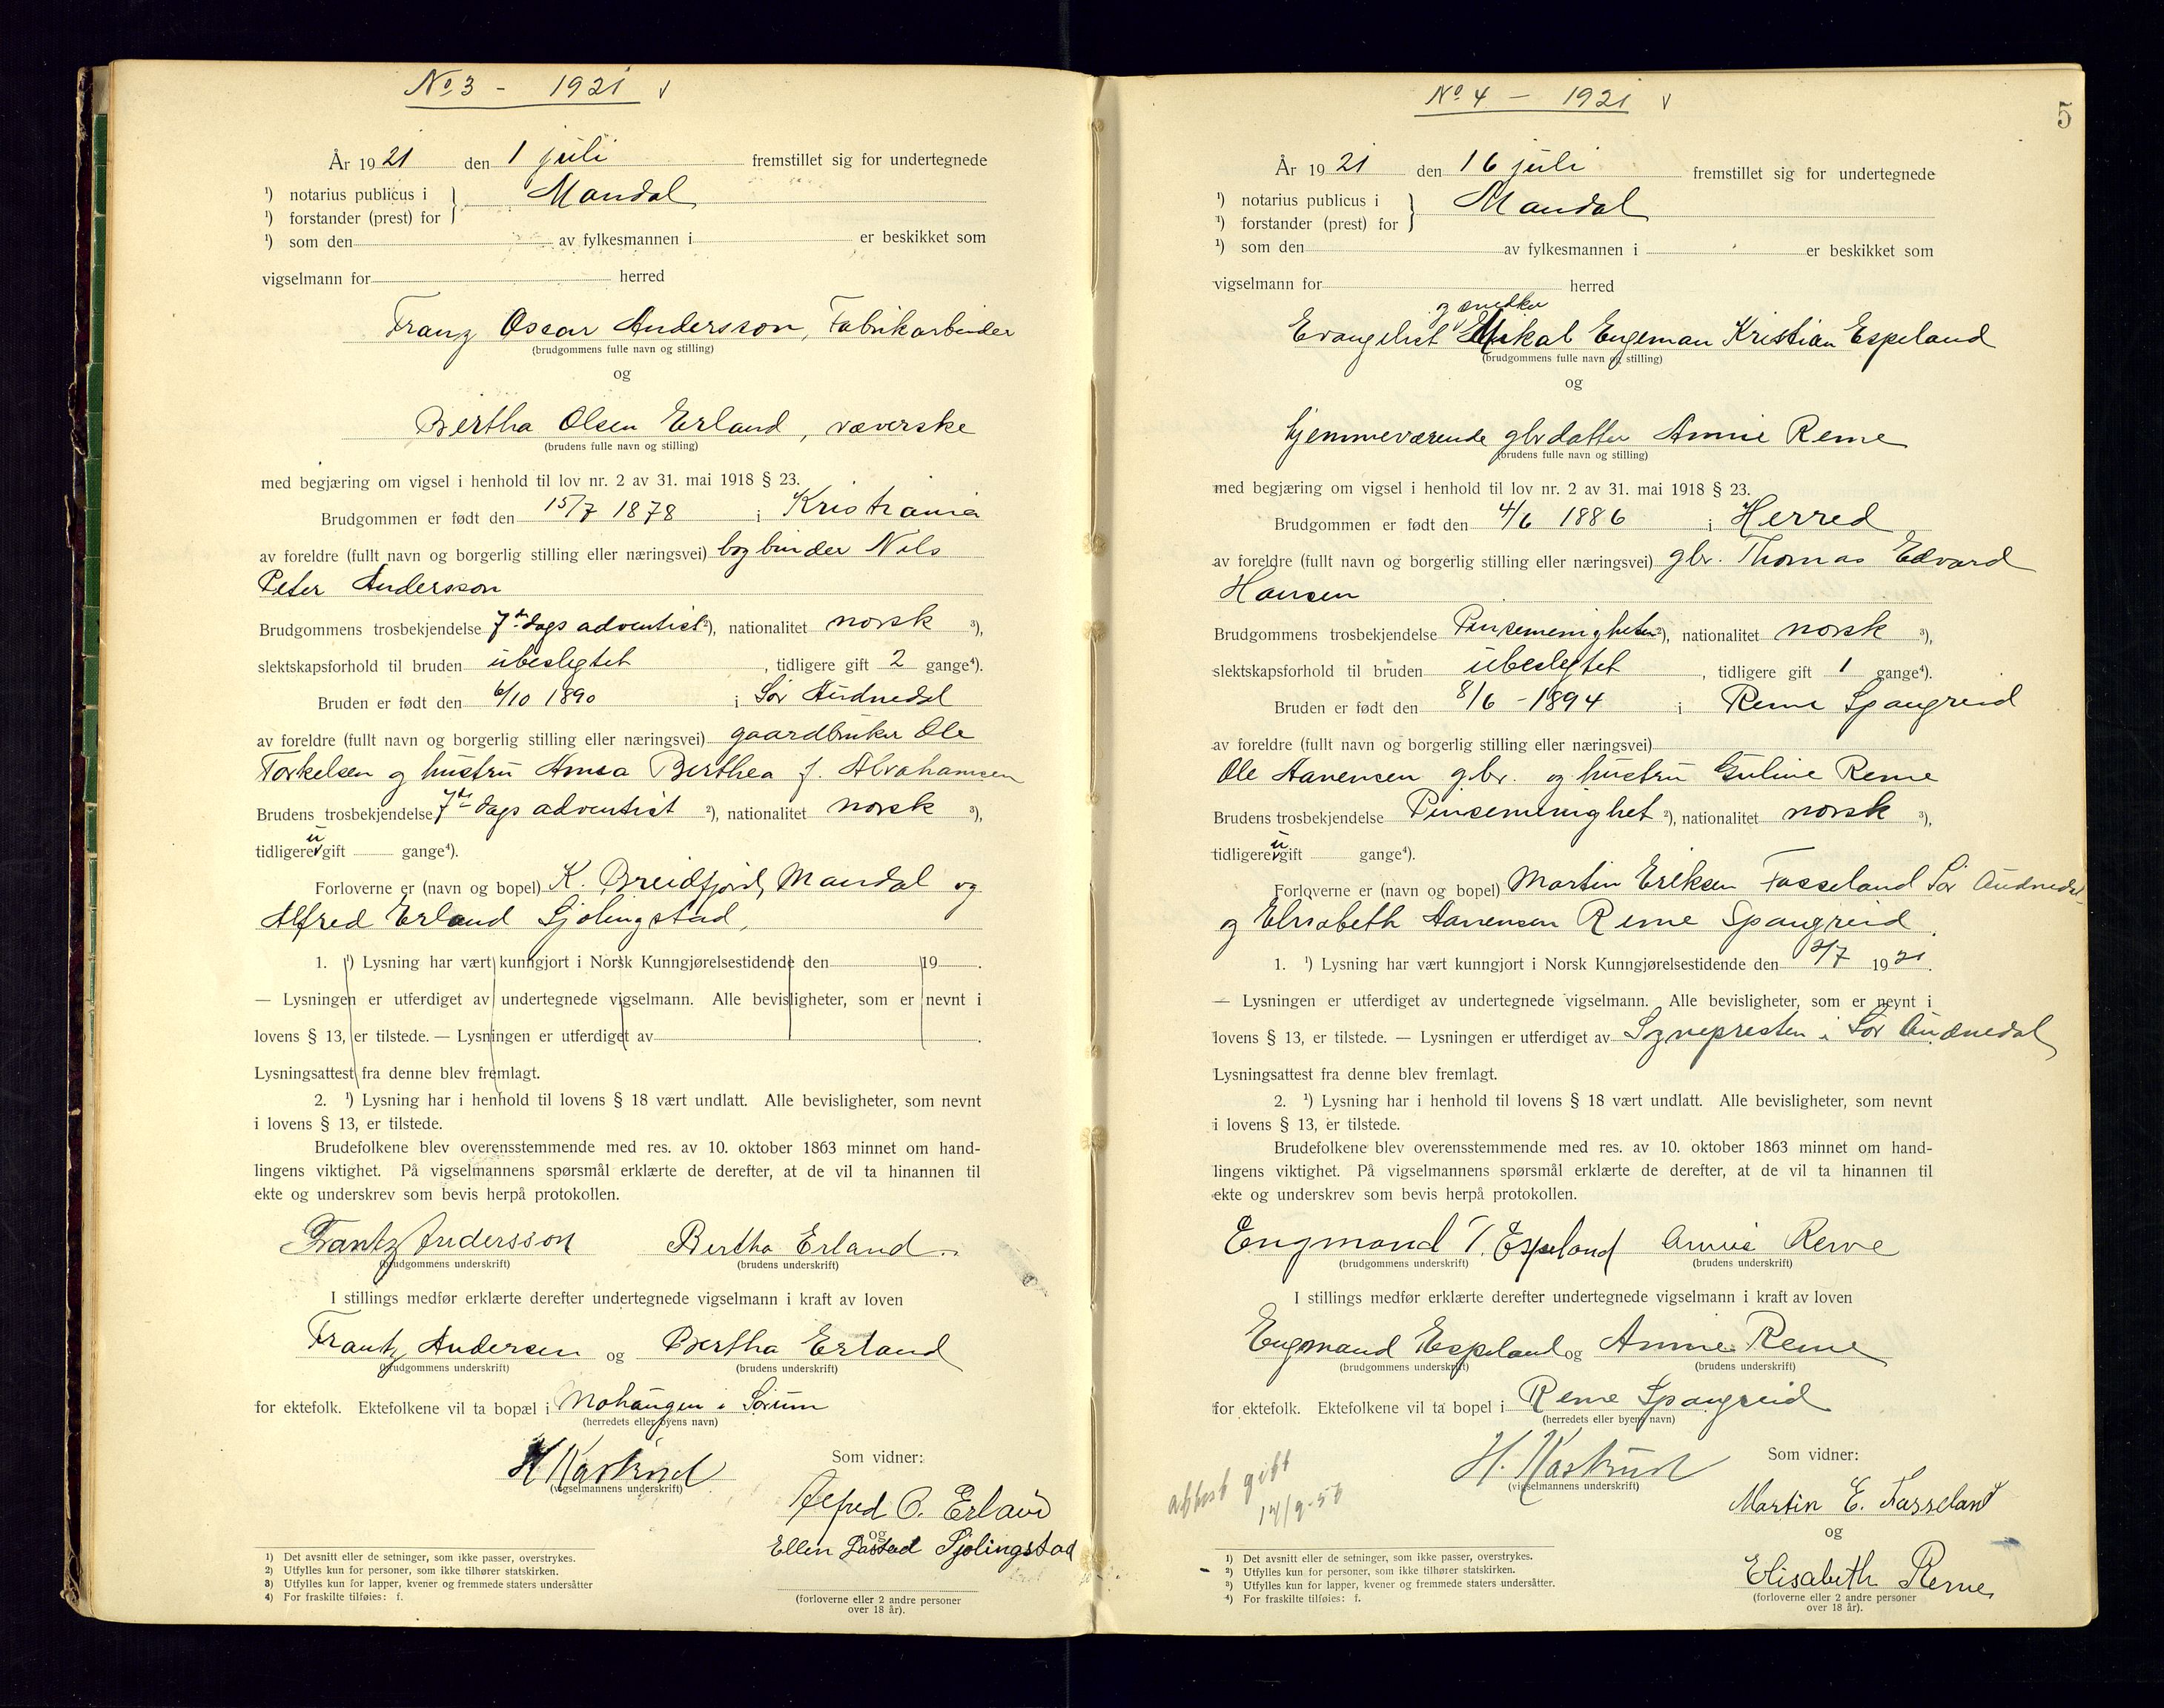 No 3 - 1921
År 1921 den 1 juli fremstillet sig for undertegnede
¹) notarius publicus i } Mandal
¹) forstander (prest) for
¹) som den av fylkesmannen i er beskikket som
vigselmann for herred
Franz Oscar Andersson, Fabrikarbeider
(brudgommens fulle navn og stilling)
og
Bertha Olsen Erland, væverske
(brudens fulle navn og stilling)
med begjæring om vigsel i henhold til lov nr. 2 av 31. mai 1918 § 23.
Brudgommen er født den 15/7 1878 i Kristiania
av foreldre (fullt navn og borgerlig stilling eller næringsvei) bogbinder Nils
Peter Andersson
Brudgommens trosbekjendelse 7de dags adventist ²), nationalitet norsk ³),
slektskapsforhold til bruden ubeslegtet, tidligere gift 2 gange⁴).
Bruden er født den 6/10 1890 i Sør Audnedal
av foreldre (fullt navn og borgerlig stilling eller næringsvei) gaardbruker Ole
Torkelsen og hustru Anna Berthea f. Abrahamsen
Brudens trosbekjendelse 7de dags adventist ²), nationalitet norsk ³),
tidligere u gift gange⁴).
Forloverne er (navn og bopel) K. Breidfjord, Mandal og
Alfred Erland Sjølingstad,
1. ¹) Lysning har vært kunngjort i Norsk Kunngjørelsestidende den 19 .
— Lysningen er utferdiget av undertegnede vigselmann. Alle bevisligheter, som er nevnt i
lovens § 13, er tilstede. — Lysningen er utferdiget av .
Lysningsattest fra denne blev fremlagt.
2. ¹) Lysning har i henhold til lovens § 18 vært undlatt. Alle bevisligheter, som nevnt
i lovens § 13, er tilstede.
Brudefolkene blev overensstemmende med res. av 10. oktober 1863 minnet om hand-
lingens viktighet. På vigselmannens spørsmål erklærte de derefter, at de vil ta hinannen til
ekte og underskrev som bevis herpå protokollen.
Frantz Andersson Bertha Erland
(brudgommens underskrift) (brudens underskrift)
I stillings medfør erklærte derefter undertegnede vigselmann i kraft av loven
Frantz Andersen og Bertha Erland
(brudgommens underskrift) (brudens underskrift)
for ektefolk. Ektefolkene vil ta bopæl i Mohaugen i Sørum
(herredets eller byens navn)
H Kastrud
(vigselmannens underskrift)
Som vidner:
Alfred O. Erland
og
Ellen Sjølingstad
(forloverne eller 2 andre personer
over 18 år).
1) Det avsnitt eller de setninger, som ikke passer, overstrykes.
2) Utfylles kun for personer, som ikke tilhører statskirken.
3) Utfylles kun for lapper, kvener og fremmede staters undersåtter
4) For fraskilte tilføies: f.
5
No. 4 - 1921
År 1921 den 16 juli fremstillet sig for undertegnede
¹) notarius publicus i } Mandal
¹) forstander (prest) for
¹) som den av fylkesmannen i er beskikket som
vigselmann for herred
og snedker
Evangelist Mikal Engeman Kristian Espeland
(brudgommens fulle navn og stilling)
og
hjemmeværende gbrdatter Annie Reme
(brudens fulle navn og stilling)
med begjæring om vigsel i henhold til lov nr. 2 av 31. mai 1918 § 23.
Brudgommen er født den 4/6 1886 i Herred
av foreldre (fullt navn og borgerlig stilling eller næringsvei) gbr. Thomas Edvard
Hansen
Brudgommens trosbekjendelse Pinsemenigheten ²), nationalitet norsk ³),
slektskapsforhold til bruden ubeslegtet, tidligere gift 1 gange⁴).
Bruden er født den 8/6 - 1894 i Reme Spangreid
av foreldre (fullt navn og borgerlig stilling eller næringsvei)
Ole Aanensen gbr. og hustru Guline Reme
Brudens trosbekjendelse Pinsemenighet ²), nationalitet norsk ³),
tidligere u gift gange⁴).
Forloverne er (navn og bopel) Martin Eriksen Fasseland Sør Audnedal
og Elisabeth Aanensen Reme Spangreid.
1. ¹) Lysning har vært kunngjort i Norsk Kunngjørelsestidende den 2/7 1921.
— Lysningen er utferdiget av undertegnede vigselmann. Alle bevisligheter, som er nevnt i
lovens § 13, er tilstede. — Lysningen er utferdiget av Sognepresten i Sør Audnedal
Lysningsattest fra denne blev fremlagt.
2. ¹) Lysning har i henhold til lovens § 18 vært undlatt. Alle bevisligheter, som nevnt
i lovens § 13, er tilstede.
Brudefolkene blev overensstemmende med res. av 10. oktober 1863 minnet om hand-
lingens viktighet. På vigselmannens spørsmål erklærte de derefter, at de vil ta hinannen til
ekte og underskrev som bevis herpå protokollen.
Engmand T. Espeland Annie Reme
(brudgommens underskrift) (brudens underskrift)
I stillings medfør erklærte derefter undertegnede vigselmann i kraft av loven
Engmand Espeland og Annie Reme
(brudgommens underskrift) (brudens underskrift)
for ektefolk. Ektefolkene vil ta bopel i Reme Spangreid
(herredets eller byens navn)
H. Kastrud
(vigselmannens underskrift)
attest gitt
14/9-56
Som vidner:
Martin E. Fasseland
og
Elisabeth Reme
(forloverne eller 2 andre personer
over 18 år).
1) Det avsnitt eller de setninger, som ikke passer, overstrykes.
2) Utfylles kun for personer, som ikke tilhører statskirken.
3) Utfylles kun for lapper, kvener og fremmede staters undersåtter.
4) For fraskilte tilføies: f.